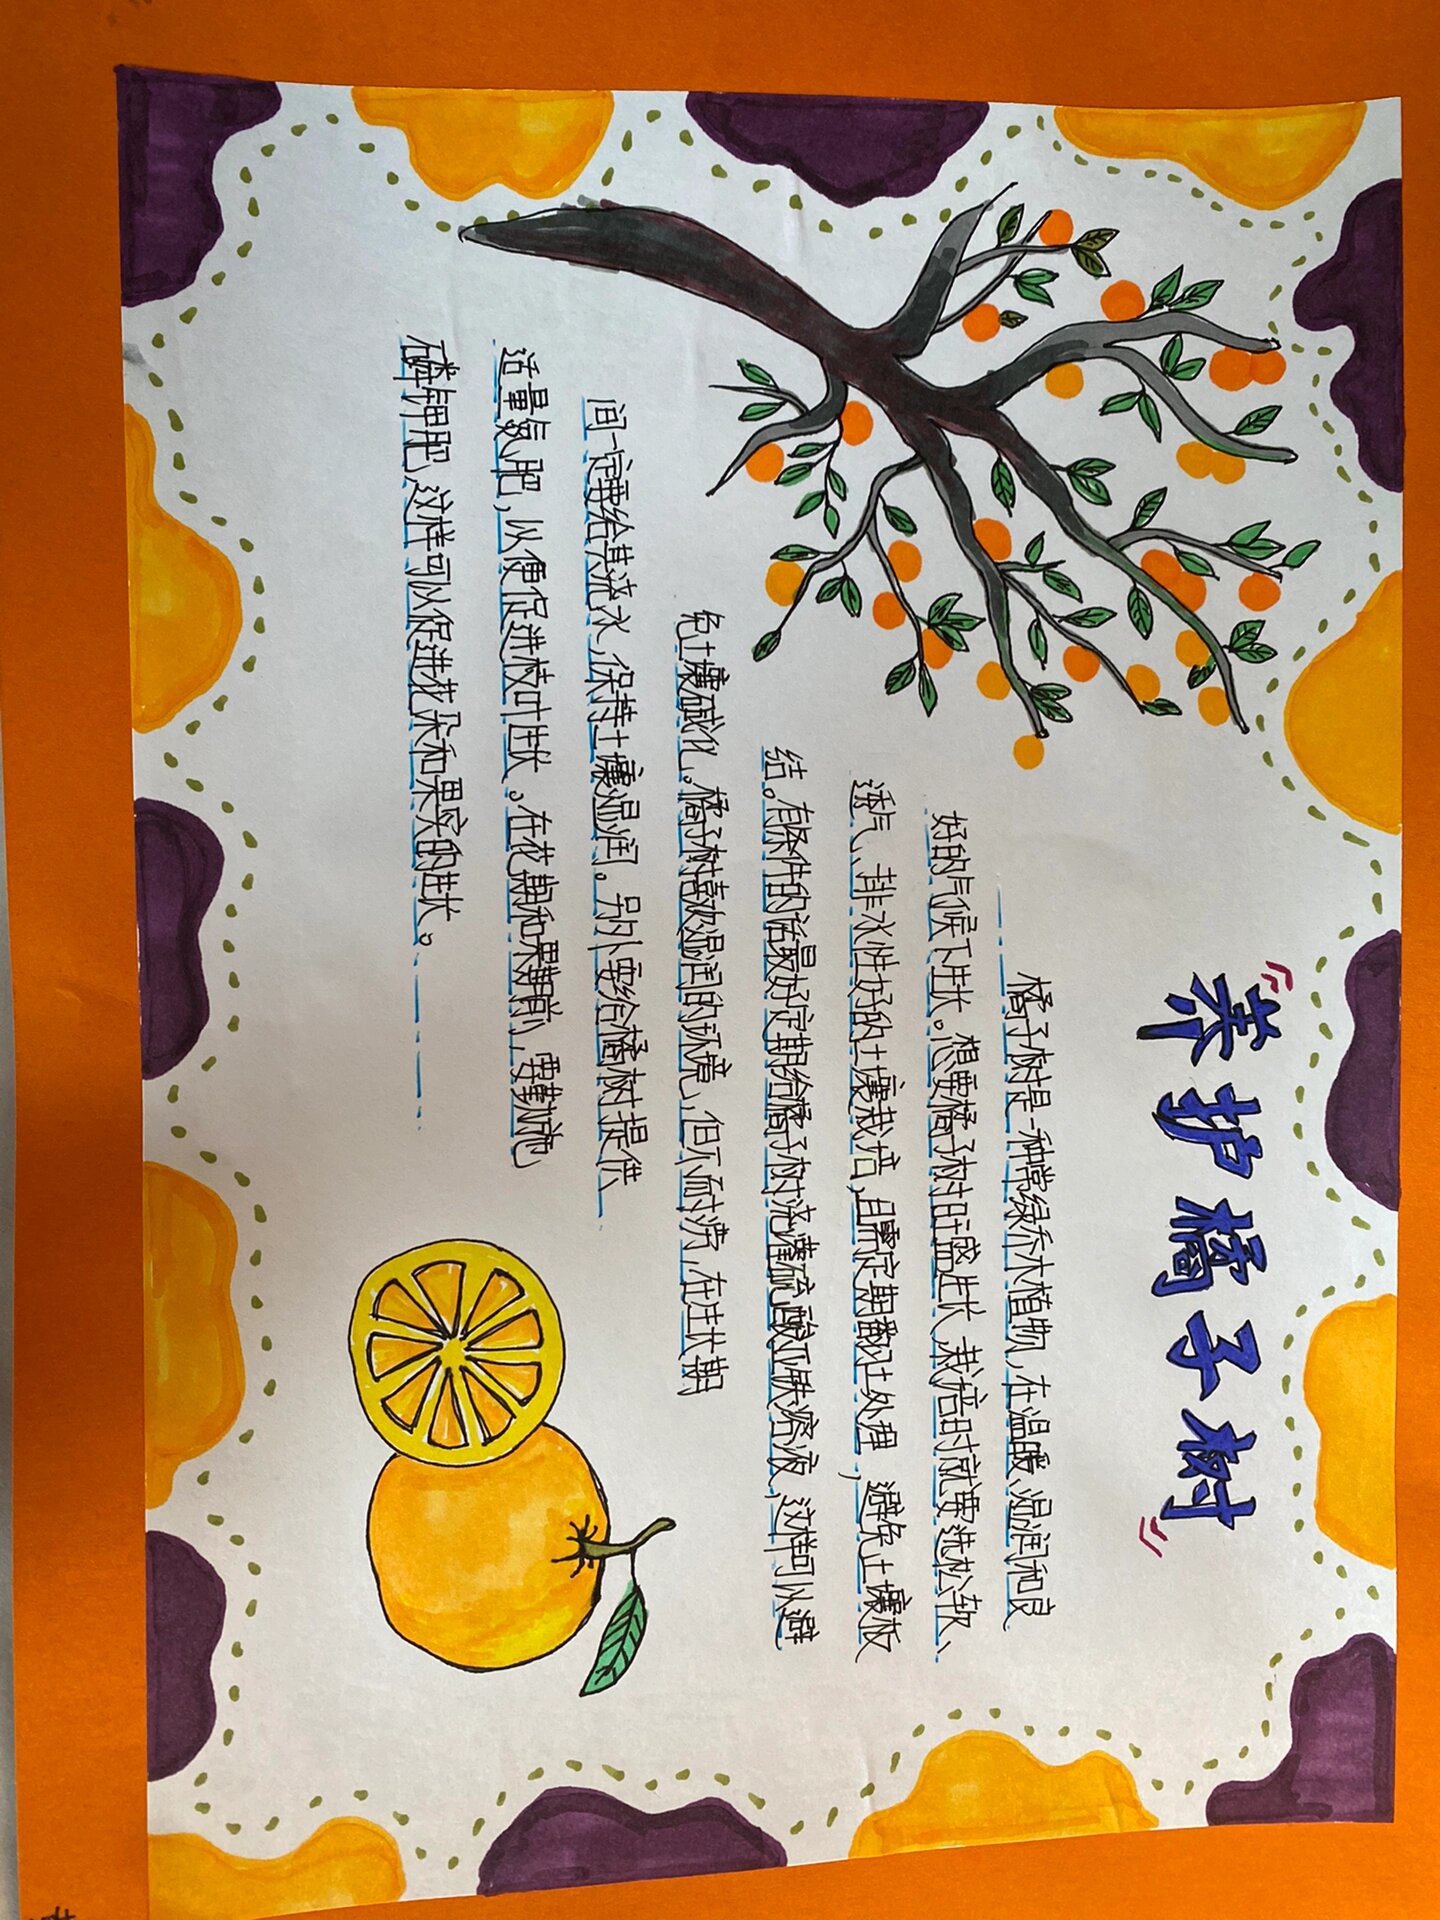 《养护橘子树》
橘子树是一种常绿乔木植物,在温暖、湿润和良
好的气候下生长。想要橘子树旺盛生长,栽培时就要选松软、
透气、排水性好的土壤栽培,且需定期翻土处理,避免土壤板
结。有条件的话最好定期给橘子树浇灌硫酸亚铁溶液,这样可以避
免土壤碱化。橘子树喜欢湿润的环境,但不耐涝,在生长期
间一定要给其浇水,保持土壤湿润。另外要给橘树提供
适量氮肥,以便促进枝叶生长。在花期和果期前,要勤施
磷钾肥,这样可以促进花朵和果实的生长。